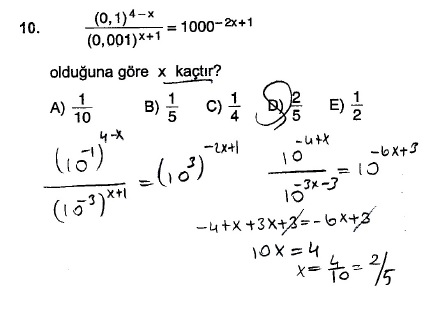 10. (0,1)^4-x / (0,001)^x+1 = 1000^-2x+1
olduğuna göre x kaçtır?
A) 1/10 B) 1/5 C) 1/4 D) 2/5 E) 1/2
(10^-1)^4-x / (10^-3)^x+1 = (10^3)^-2x+1
10^-4+x / 10^-3x-3 = 10^-6x+3
-4+x+3x+3=-6x+3
10x=4
x=4/10=2/5